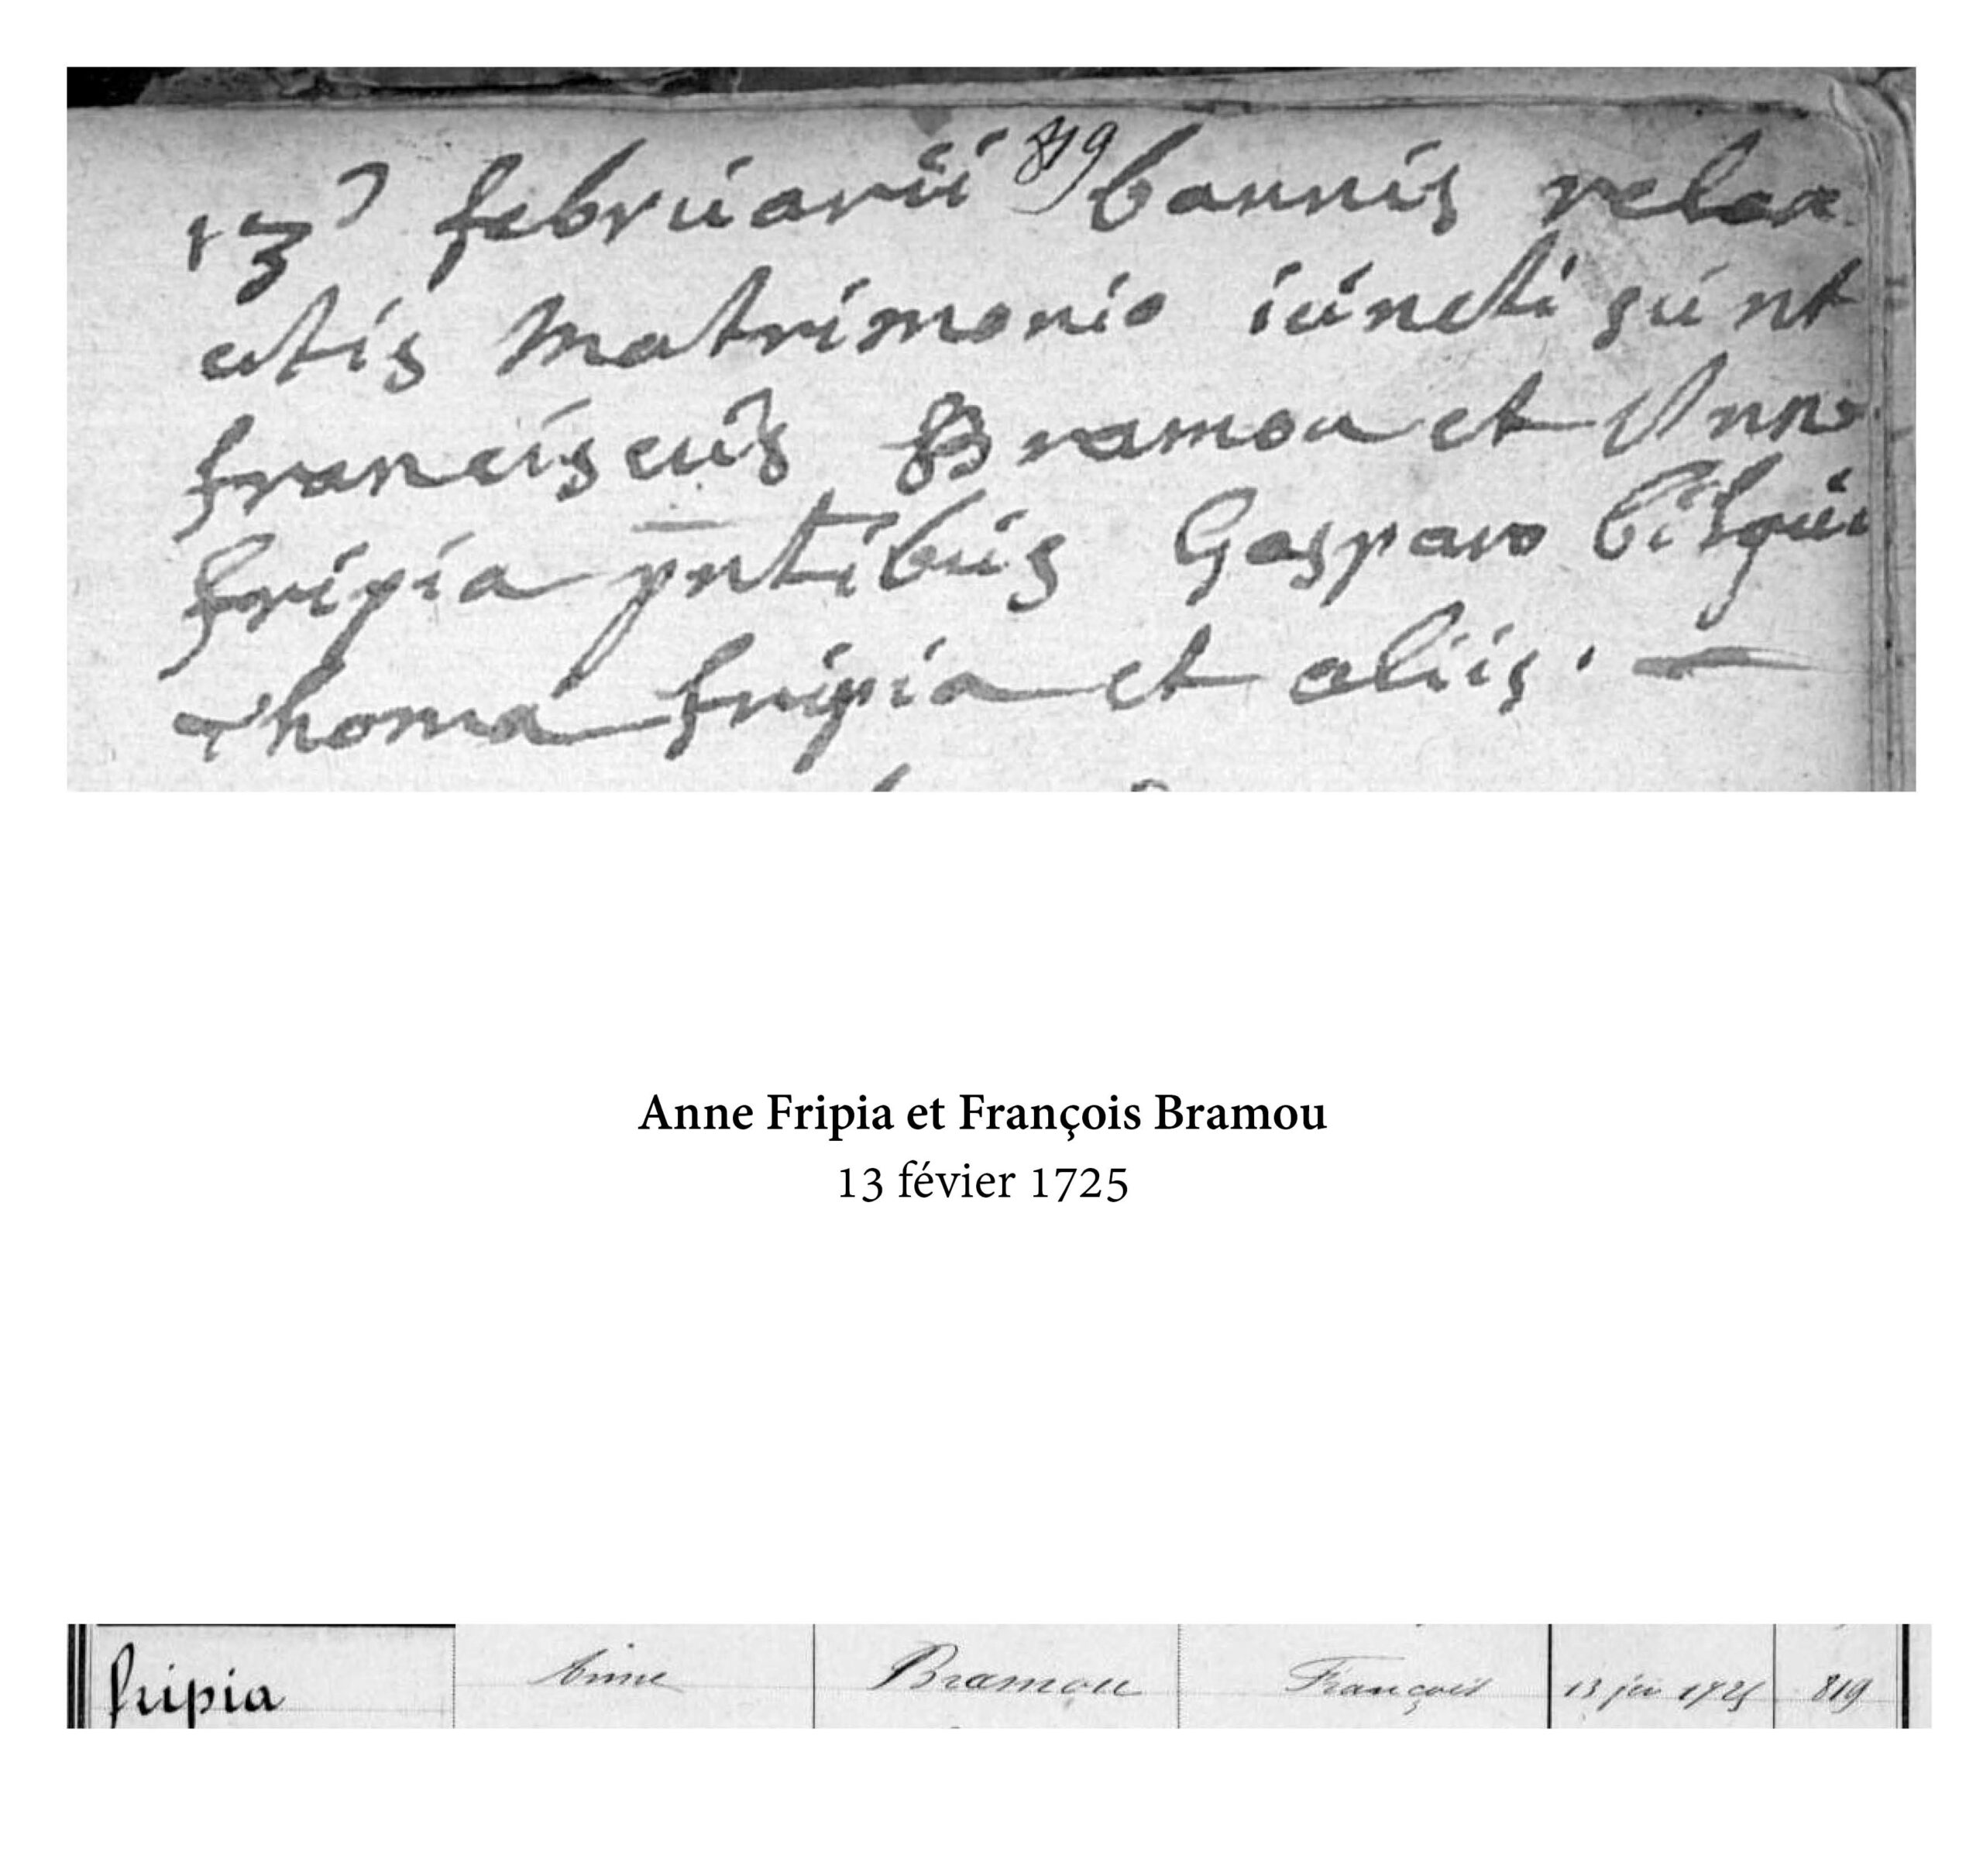 13 februarii 819 bannis relax
atis matrimonio iuncti sunt
franciscus Bramou et Anna
fripia pntibus Gasparo
Thoma fripia et aliis. —
Anne Fripia et François Bramou
13 févier 1725
fripia Anne Bramou François 13 fev 1725 819